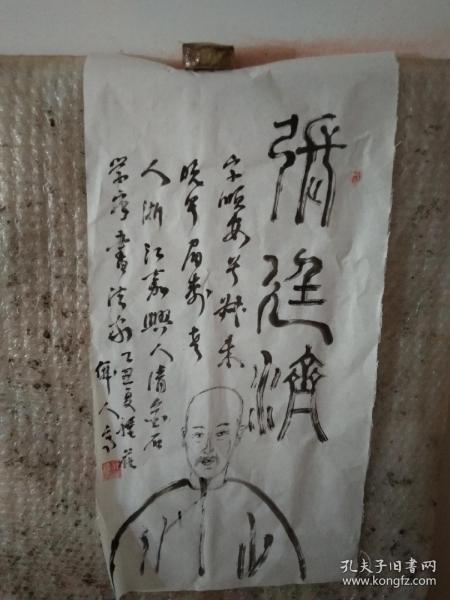 張廷濟
字順安号叔未
晚年眉寿老
人浙江嘉興人清金石
学家書法家乙丑夏
偉人
孔夫子旧书网
www.kongfz.com